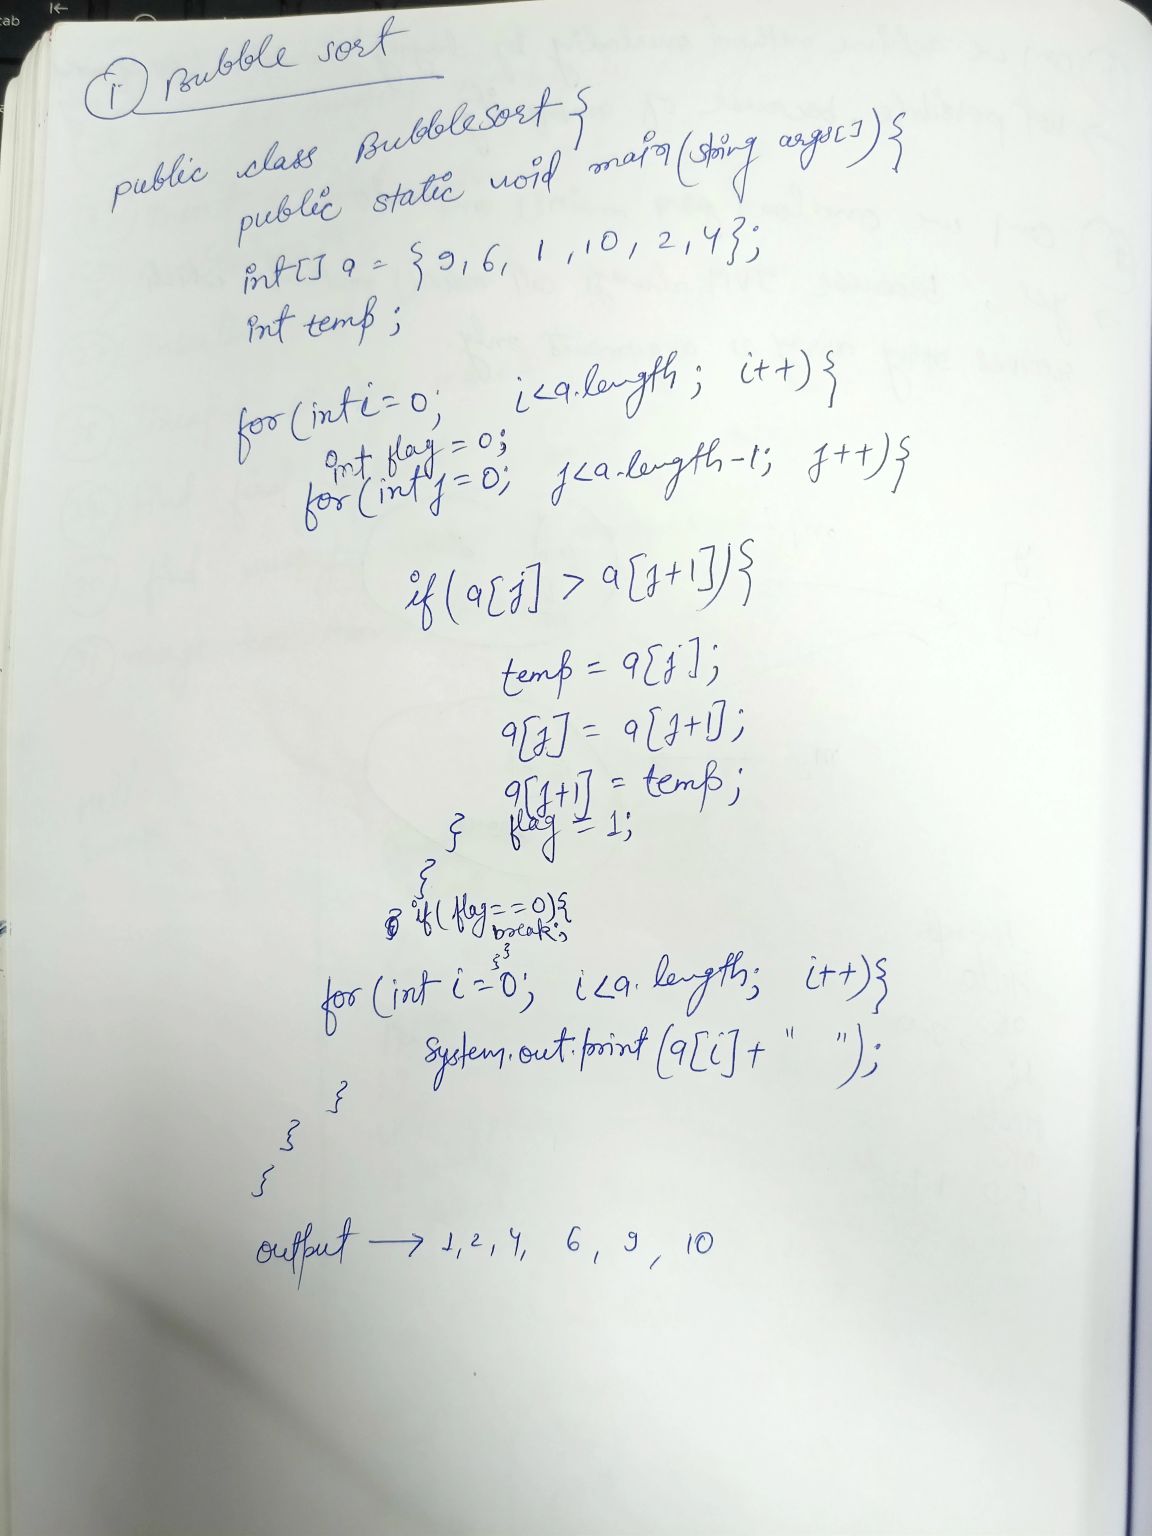 tab
① Bubble sort
public class BubbleSort {
public static void main(string args[]) {
int[] a = { 9, 6, 1, 10, 2, 4 };
int temp;
for (int i=0; i<a.length; i++) {
int flag = 0;
for (int j=0; j<a.length-1; j++) {
if (a[j] > a[j+1]) {
temp = a[j];
a[j] = a[j+1];
a[j+1] = temp;
} flag = 1;
}
if (flag == 0) {
break;
}}
for (int i=0; i<a.length; i++) {
System.out.print (a[i] + " ");
}
}
}
output → 1, 2, 4, 6, 9, 10